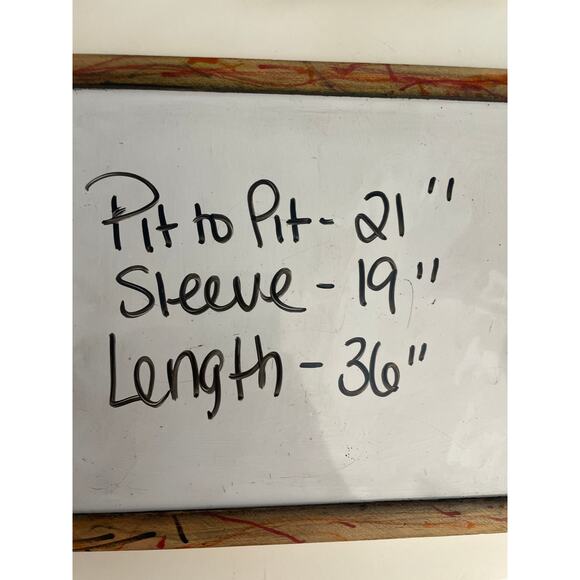 Pit to Pit - 21"
Sleeve - 19"
Length - 36"